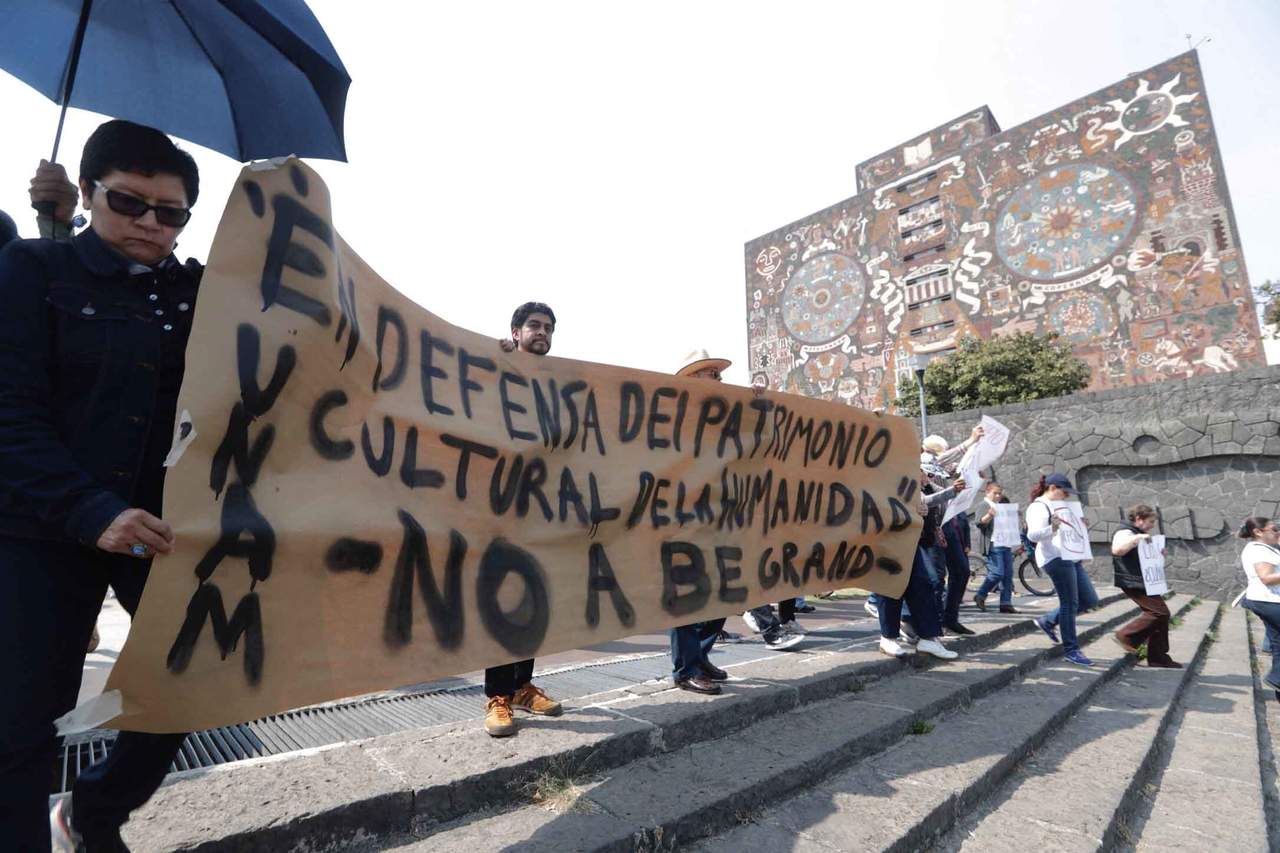 "EN DEFENSA DEl PATRIMONIO
CULTURAL DE LA HUMANIDAD"
-NO A BE GRAND-
UNAM